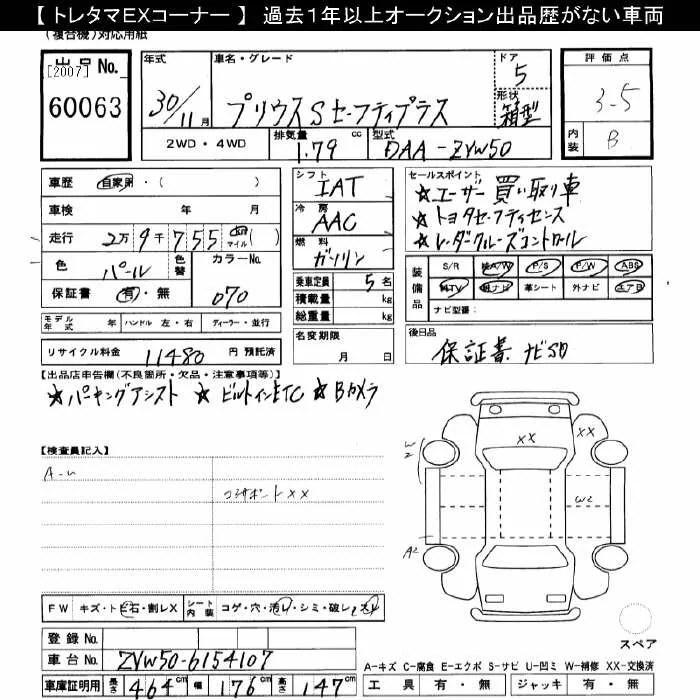 【 トレタマEXコーナー 】 過去1年以上オークション出品歴がない車両
(複合機)対応用紙
出品 No.
[2007]
60063
年式
30/11 月
車名・グレード
プリウス S セーフティプラス
ドア
5
形状
箱型
評価点
3.5
内装
B
2WD・4WD
排気量
1.79 cc
型式
DAA-ZVW50
車歴 自家用・( )
車検 年 月
走行 2万 9千 755 km マイル ( )
色 パール
色替
カラーNo.
070
保証書 有・無
モデル年式 年 ハンドル 左・右 ディーラー・並行
リサイクル料金 11480 円 預託済
シフト
IAT
冷房
AAC
燃料
ガソリン
乗車定員 5 名
積載量 kg
総重量 kg
名変期限
月 日
セールスポイント
★ユーザー買い取り車
★トヨタセーフティセンス
★レーダークルーズコントロール
装備品
S/R 純A/W P/S P/W ABS
純TV 純ナビ 革シート 外ナビ エアB
ナビ型番:
後日品
保証書 ナビSD
【出品店申告欄(不良箇所・欠品・注意事項等)】
★パーキングアシスト ★ビルトインETC ★Bカメラ
【検査員記入】
A-U
コアサポートXX
XX
XX
W2
W2
A2
スペア
FW キズ・トビ石・割レX
シート内装 コゲ・穴・汚レ・シミ・破レ・スレ
登録 No.
車台 No. ZVW50-6154107
車庫証明用 長さ 464 cm 幅 176 cm 高さ 147 cm
A-キズ C-腐食 E-エクボ S-サビ U-凹ミ W-補修 XX-交換済
工具 有・無 ジャッキ 有・無